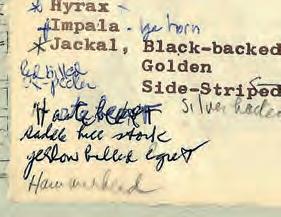 * Hyrax -
+ Impala - ye horn
* Jackal, Black-backed
Golden
red billed
Side-Striped
Silver backed
"Hartebeest
saddle bill stork
yellow billed egret
Hammerhead